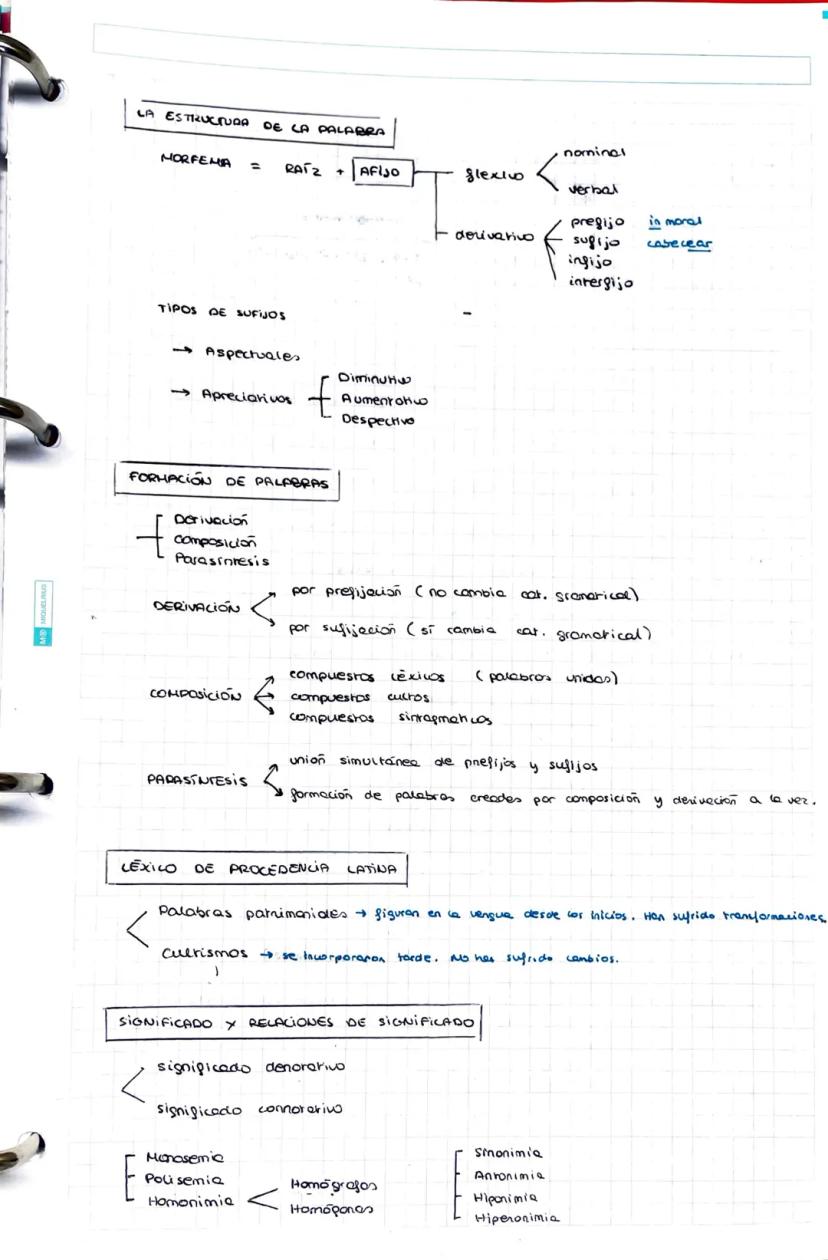 LA ESTRUCTURA DE LA PALABRA
MORFEMA = RAÍZ + AFIJO
flexivo
nominal
verbal
derivativo
prefijo in moral
sufijo cabecear
infijo
interfijo
TIPOS DE SUFIJOS
→ Aspectuales
→ Apreciativos
Diminutivo
Aumentativo
Despectivo
FORMACIÓN DE PALABRAS
Derivación
Composición
Parasíntesis
DERIVACIÓN
por prefijación (no cambia cat. gramatical)
por sufijación (sí cambia cat. gramatical)
COMPOSICIÓN
compuestos léxicos (palabras unidas)
compuestos cultos
compuestos sintagmáticos
PARASÍNTESIS
unión simultánea de prefijos y sufijos
formación de palabras creades por composición y derivación a la vez.
LÉXICO DE PROCEDENCIA LATINA
Palabras patrimoniales → figuran en la lengua desde los inicios. Han sufrido transformaciones.
Cultismos → se incorporaron tarde. No han sufrido cambios.
SIGNIFICADO Y RELACIONES DE SIGNIFICADO
significado denotativo
significado connotativo
Monosemia
Polisemia
Homonimia
Homógrafos
Homófonos
Sinonimia
Antonimia
Hiponimia
Hiperonimia
MR MIQUELRIUS